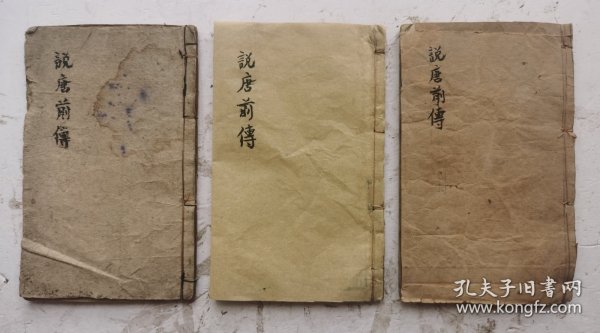 説唐前傳
説唐前傳
説唐前傳
孔夫子旧书网
www.kongfz.com